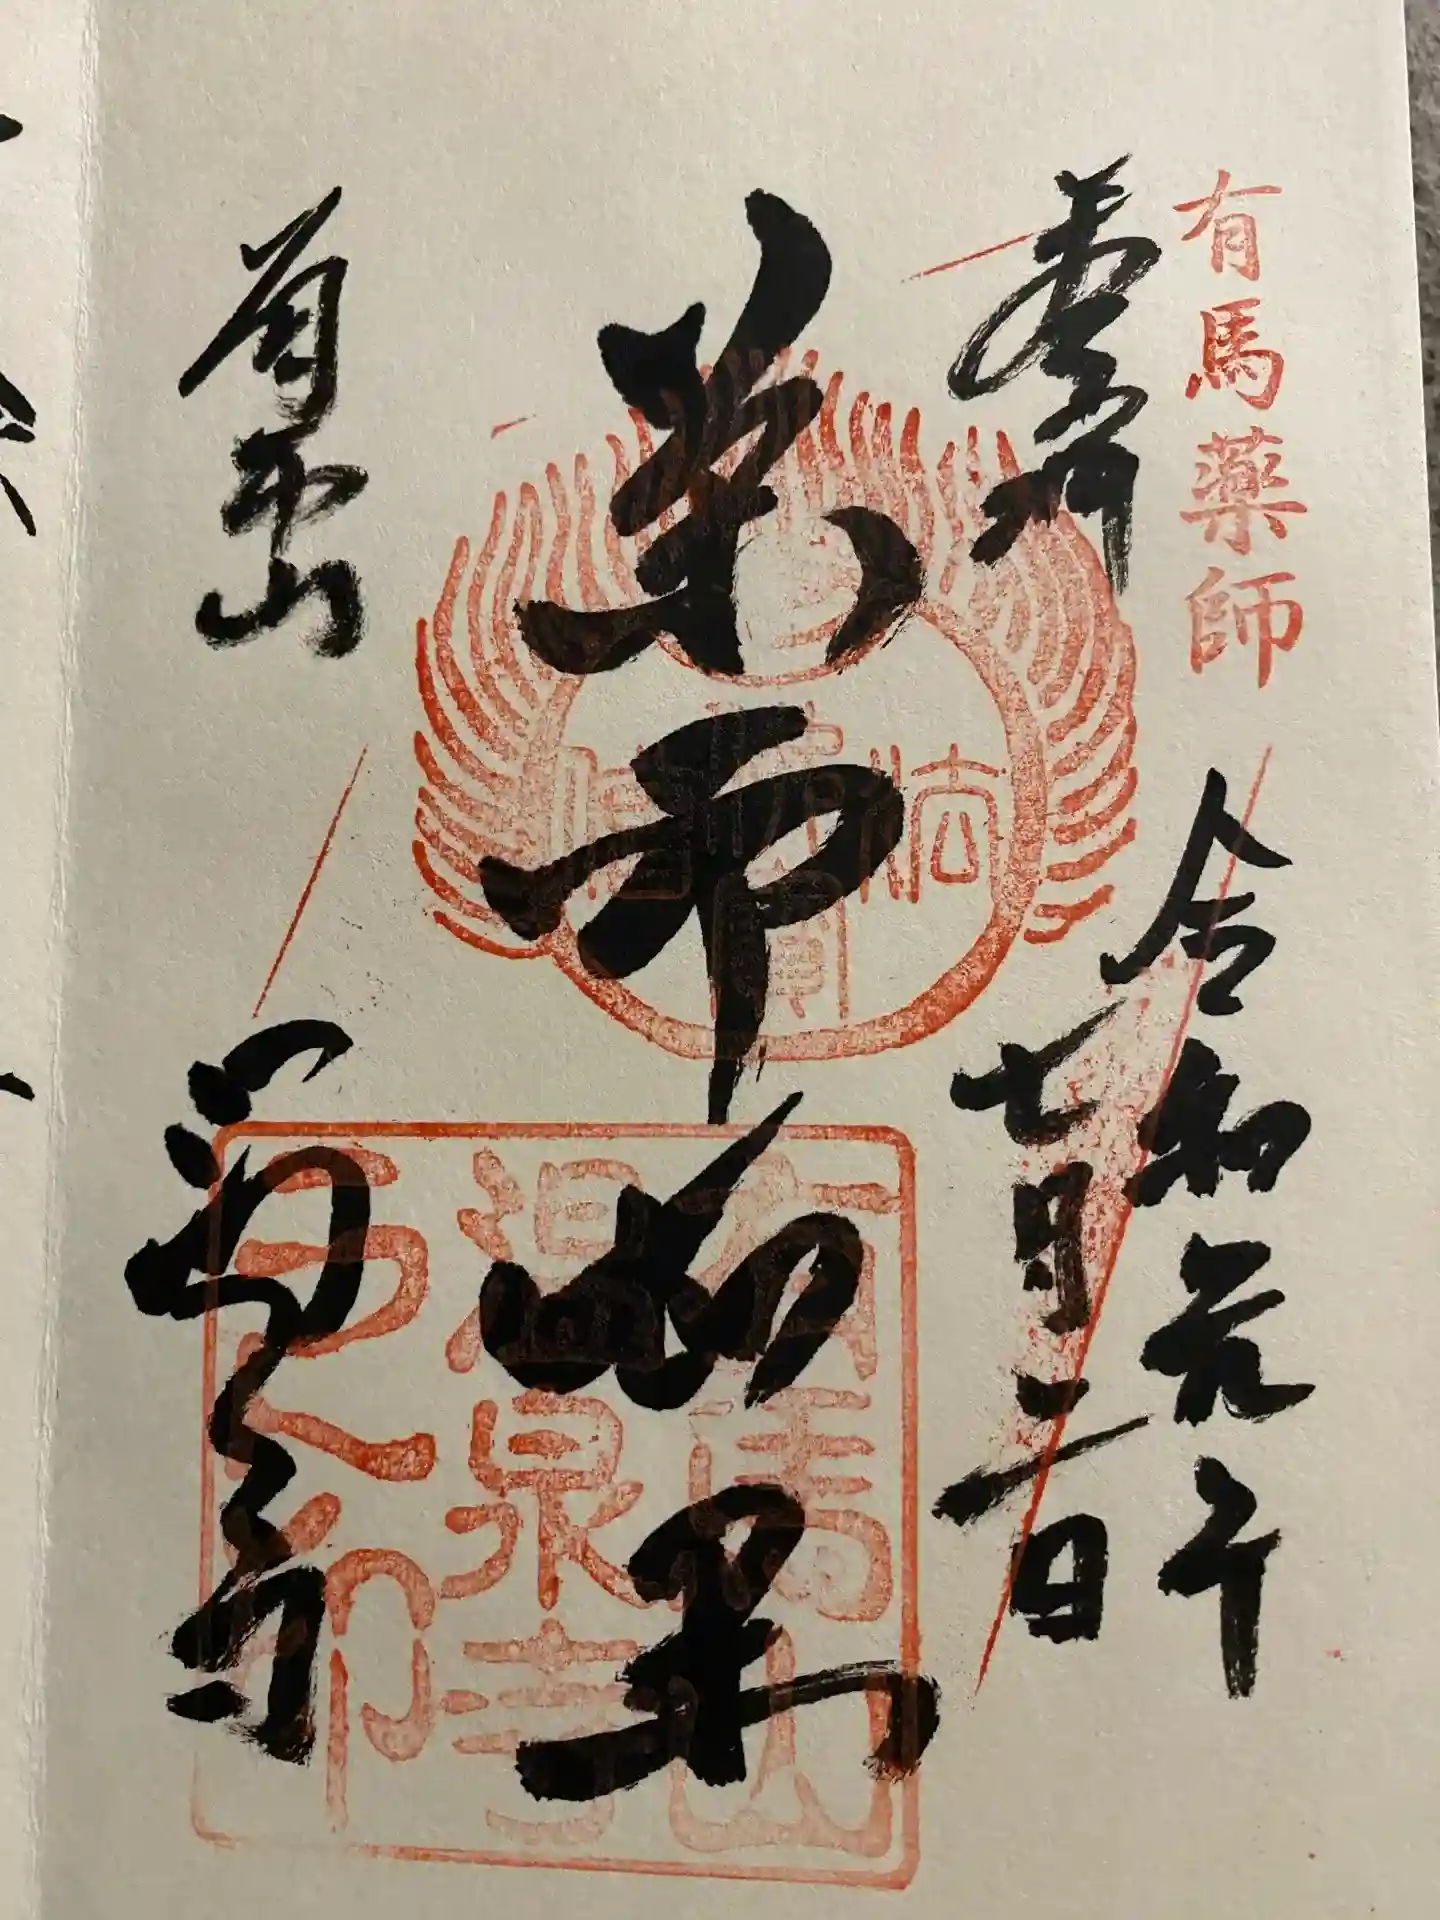 有馬薬師
奉拝
令和元年
七月二日
薬師如来
有馬山
温泉寺
有馬山
温泉寺
之印